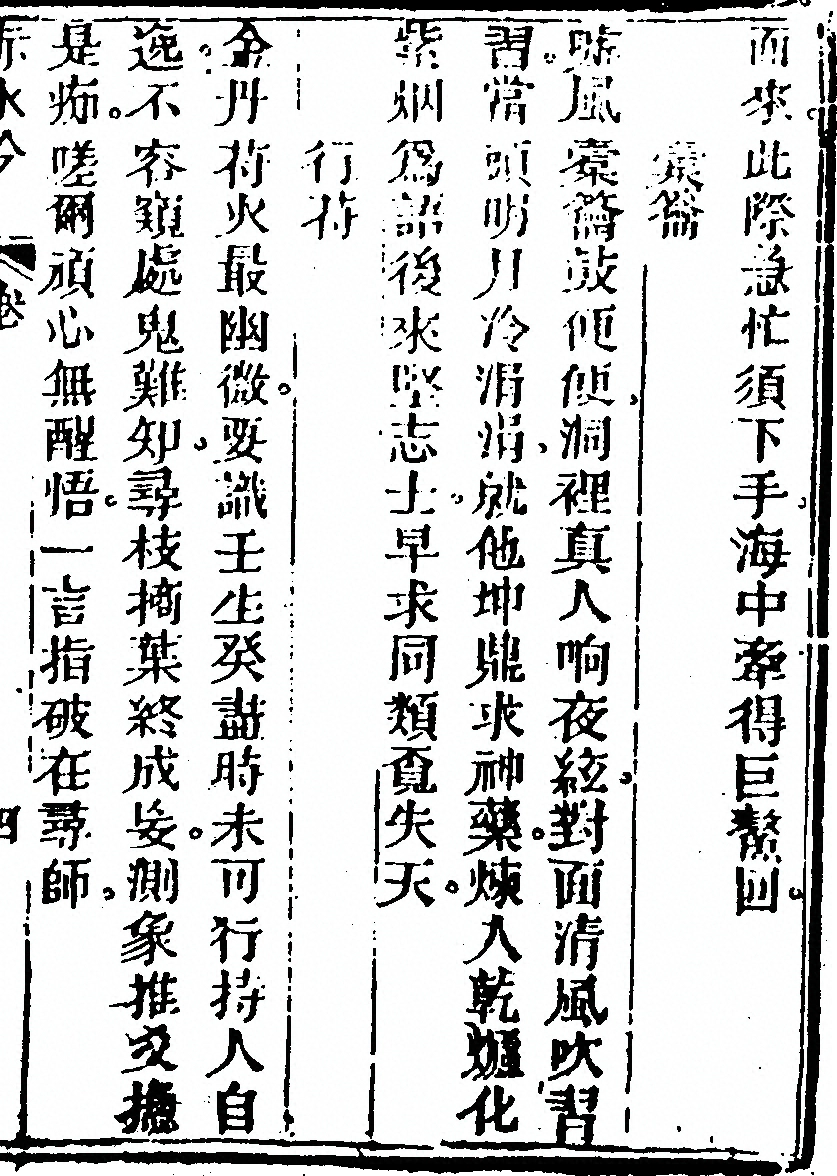 面來此際急忙須下手海中牽得巨鰲回
橐籥
噓風橐籥鼓便便洞裡真人响夜絃對面清風吹習
習當頭明月冷涓涓就他坤鼎求神藥煉入乾爐化
紫烟爲語後來堅志士早求同類覓先天
行符
金丹符火最幽微要識壬生癸盡時未可行持人自
逸不容窺處鬼難知尋枝摘葉終成妄測象推爻擬
是痴嗟爾頑心無醒悟一言指破在尋師
赤水吟 卷 四